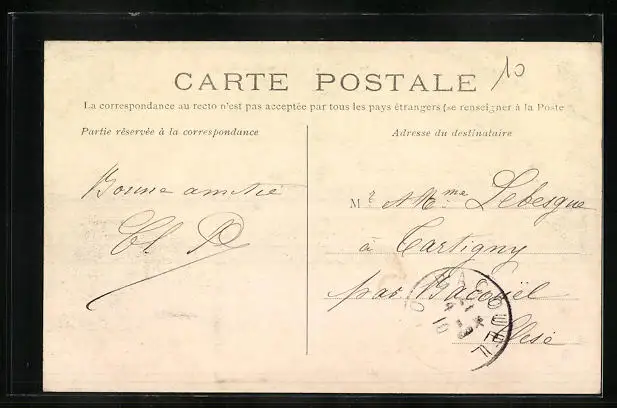 10
CARTE POSTALE
La correspondance au recto n'est pas acceptée par tous les pays étrangers (se renseigner à la Poste
Partie réservée à la correspondance
Adresse du destinataire
Bonne amitié
Mr & Mme Lebesgue
à Tartigny
par Bacouël
Oise
BACOUEL